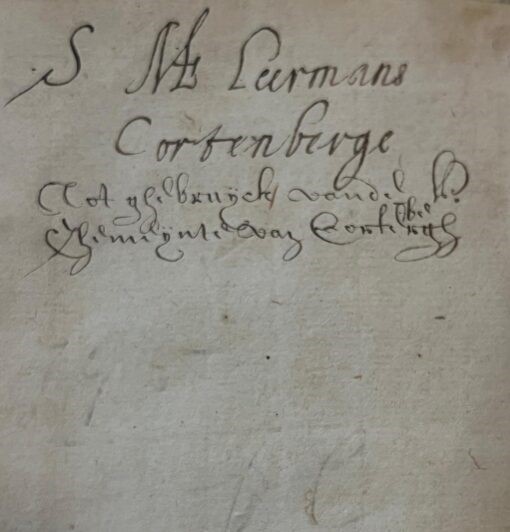 S Peermans
Cortenberge
Tot ghebruÿck vande
Ghemeÿnte van Corbergh